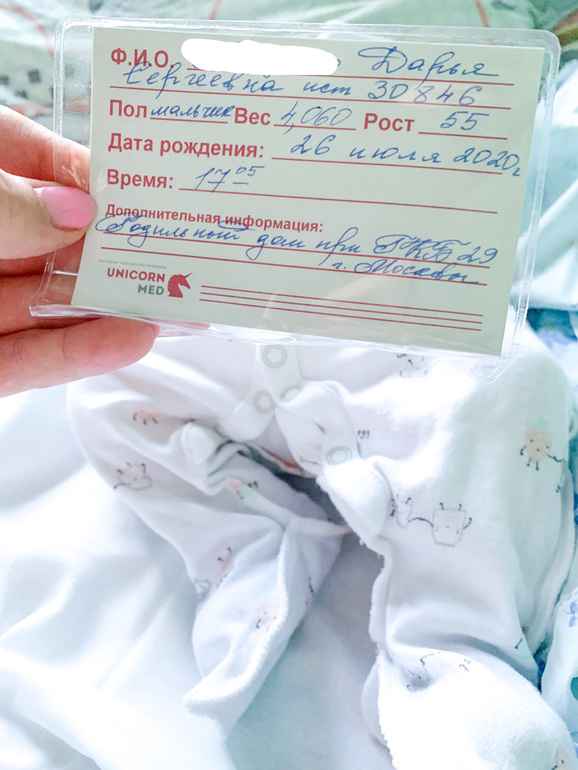 Ф.И.О. Дарья
Сергеевна ист 30846
Пол мальчик Вес 4,060 Рост 55
Дата рождения: 26 июля 2020г
Время: 17 05
Дополнительная информация:
Родильный дом при ГКБ 29
г. Москвы
UNICORN
MED